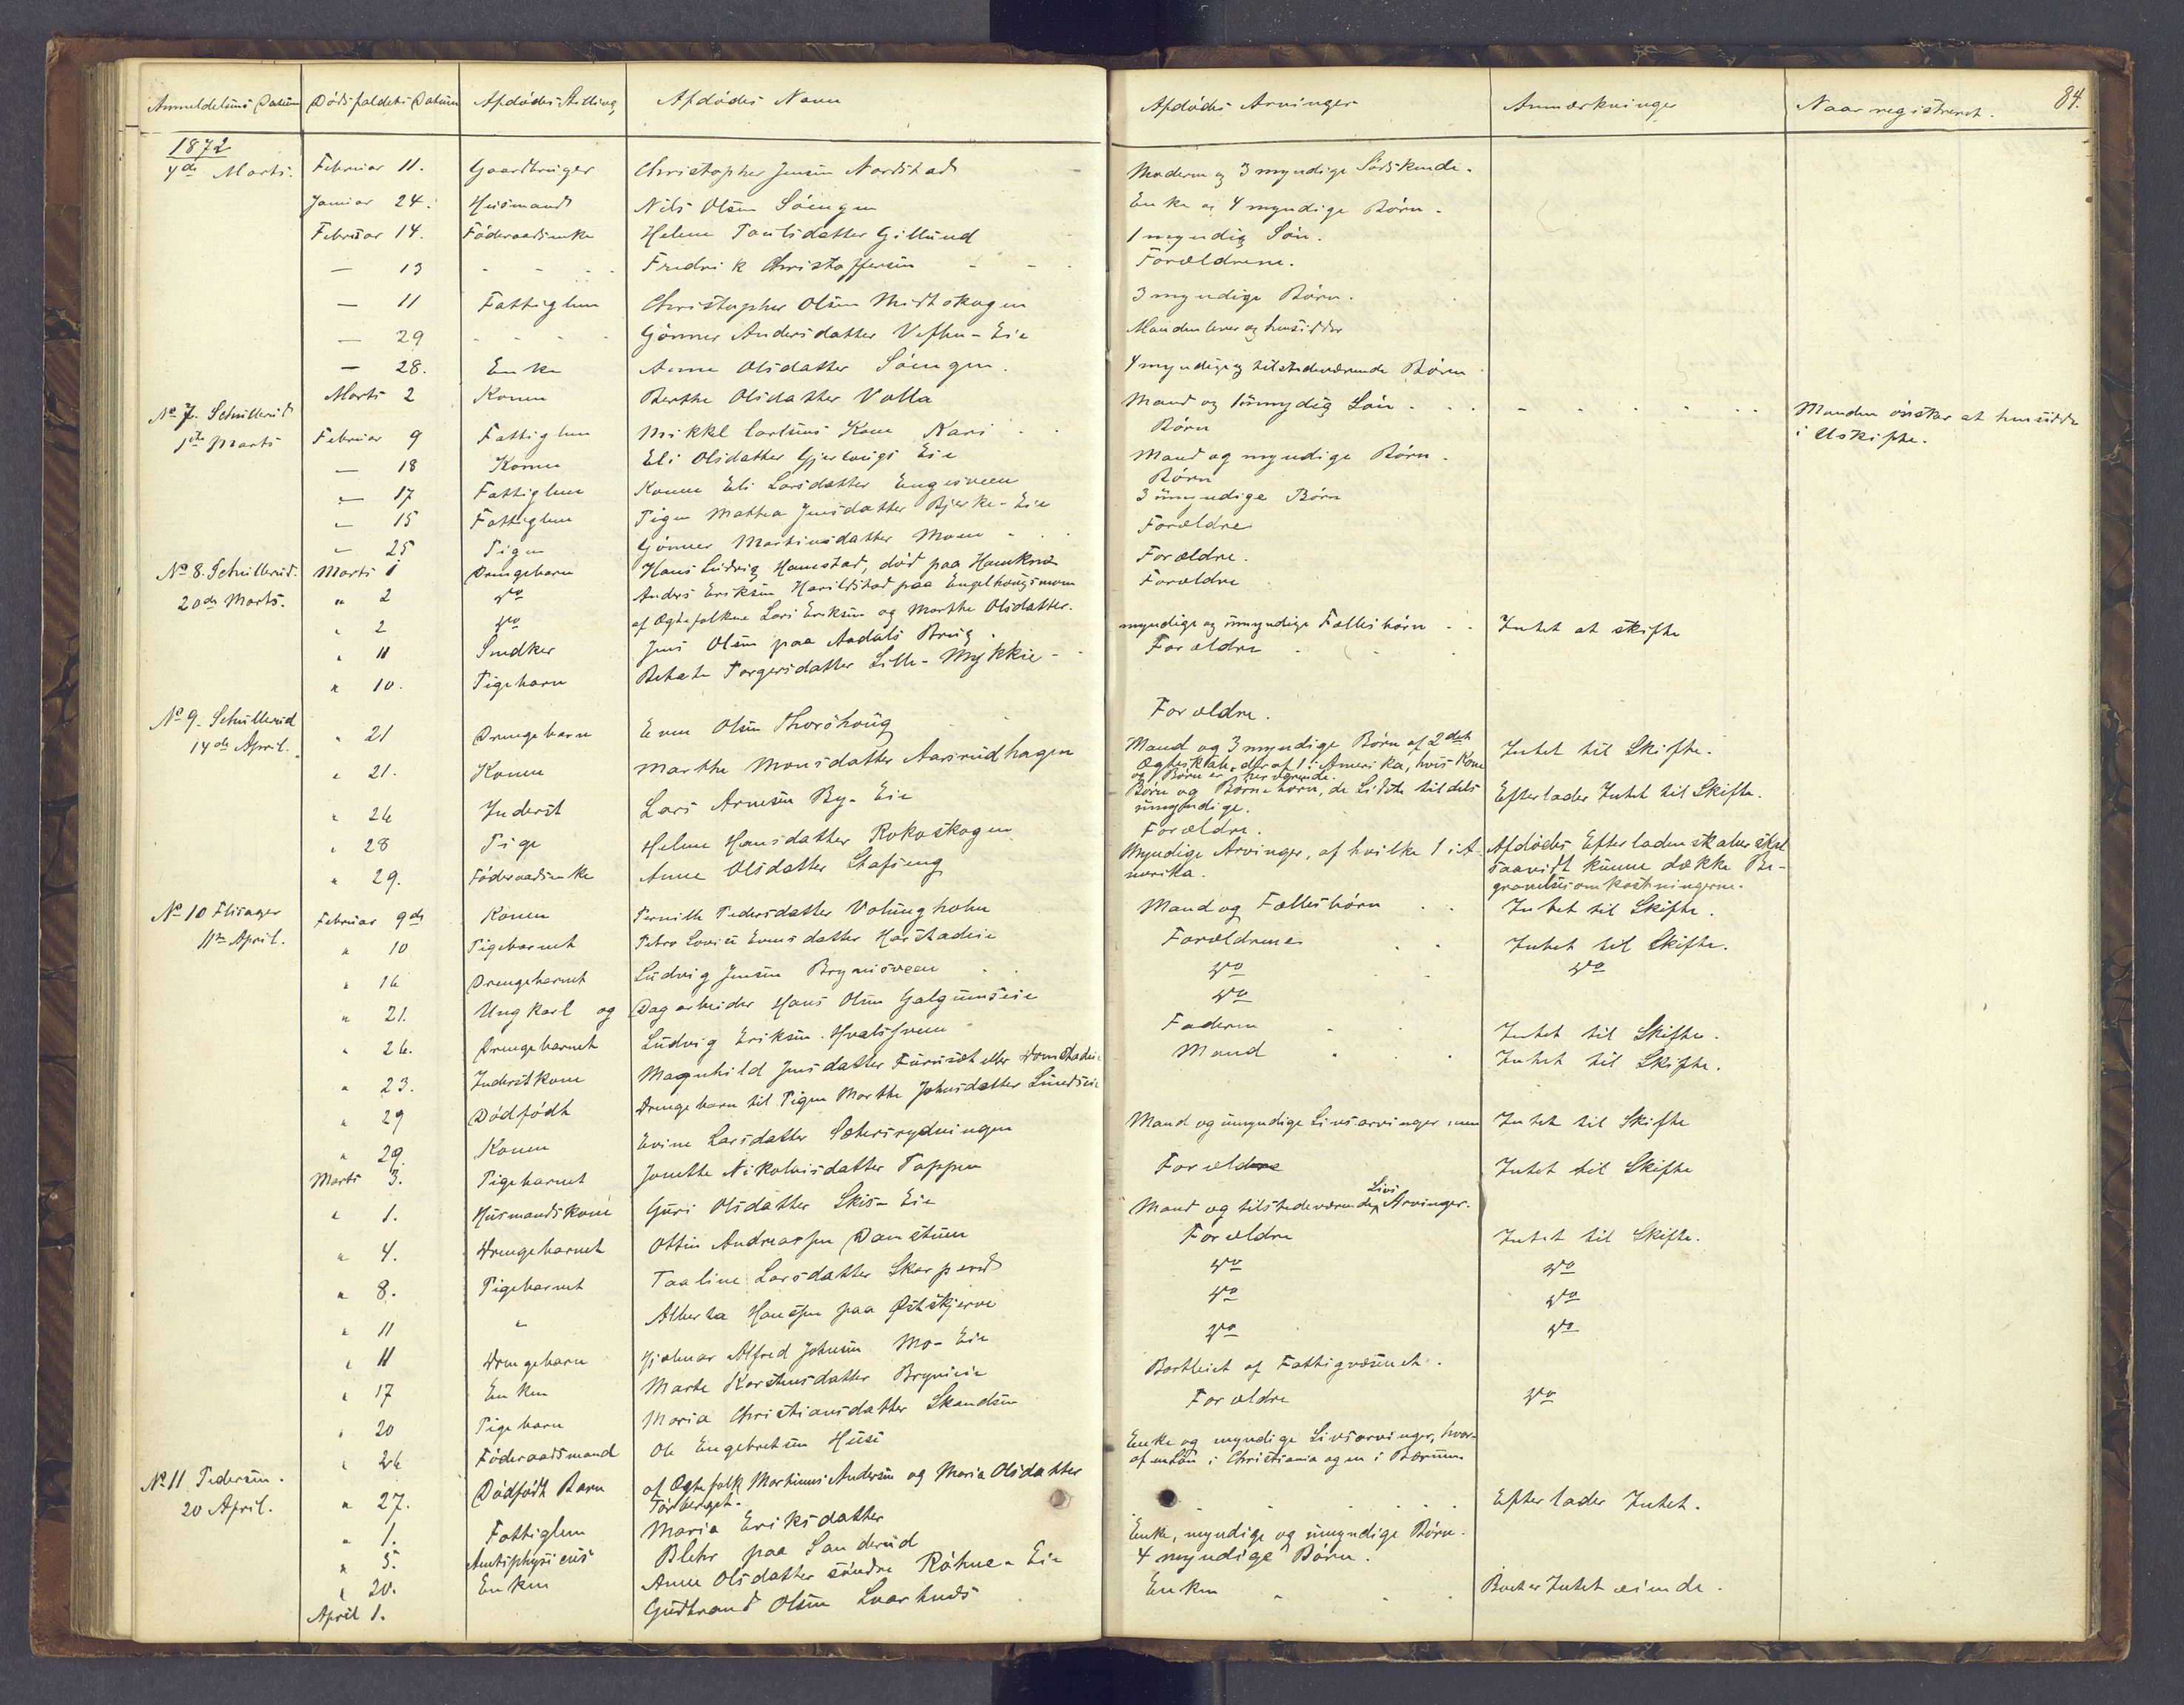 Anmeldelsens Datum Dødsfaldets Datum Afdødes Stilling Afdødes Navn Afdødes Arvinger Anmærkninger Naar registreret. 84.
1872
4de Marts. Februar 11. Gaardbruger Christopher Jensen Nordstad Moderen og 3 myndige Södskende.
Januar 24. Husmand Nils Olsen Söengen Enke og 4 myndige Börn.
Februar 14. Föderaadsenke Helene Paulsdatter Gillund 1 myndig Sön.
— 13 - - - Fredrik Christoffersen - - Forældrene.
— 11 Fattiglem Christopher Olsen Midtskogen 3 myndige Börn.
— 29 - - - Gönner Andersdatter - Eie Manden lever og hensidder
— 28. Enke Anne Olsdatter Söengen. 4 myndige og tilstedeværende Börn
Marts 2 Konen Berthe Olsdatter Volla Mand og 1 umyndig Sön - - - Manden önsker at hensidde
i Uskifte.
No 7. Schullerud
1ste Marts Februar 9 Fattiglem Mikkel Carlsens Kone Kari Börn
— 18 Konen Eli Olsdatter Eie Mand og myndige Börn.
— 17 Fattiglem Konen Eli Larsdatter Engesveen Börn
— 15 Fattiglem Pigen Mathea Jensdatter Bjerke-Eie 3 umyndige Börn
— 25 Pigen Gönner Martinusdatter Moen Forældre
No 8. Schullerud. Marts 1 Drengebarn Hans Ludvig Hamstad, död paa Forældre.
20de Marts. " 2 do Anders Eriksen Harildstad paa Engelhaugsmoen Forældre
" 2 do af Ægtefolkene Lars Eriksen og Marthe Olsdatter.
" 11 Snedker Jens Olsen paa Aadals Brug. myndige og umyndige Fællesbörn - - Intet at skifte
" 10. Pigebarn Behate Torgersdatter Lille-Mykkie - Forældre
No 9. Schullerud
14de April. " 21 Drengebarn Even Olsen Thorshoug Forældre.
" 21. Konen Marthe Monsdatter Aarsrudhagen Mand og 3 myndige Börn af 2det
Ægteskab, deraf 1 i Amerika, hvis Kone
og Börn er herværende. Intet til Skifte.
" 26 Inderst Lars Arnesen By-Eie Börn og Börnebörn, de Sidste tildels
umyndige. Efterlader Intet til Skifte.
" 28 Pige Helene Hansdatter Rokoskogen Forældre.
" 29. Föderaadsenke Anne Olsdatter Stafseng Myndige Arvinger, af hvilke 1 i A-
merika. Afdödes Efterladenskaber skal
saavidt kunne dække Be-
gravelsesomkostningerne.
No 10 Flisager Februar 9de Konen Pernille Pedersdatter Volungholen Mand og Fællesbörn Intet til Skifte.
11te April. " 10 Pigebarnet Petra Lovise Evensdatter Harstadeie Forældrene Intet til Skifte.
" 16 Drengebarnet Ludvig Jensen Brynisveen do do
" 21. Ungkarl og Dagarbeider Hans Olsen Galgumseie do
" 26. Drengebarnet Ludvig Eriksen Faderen Intet til Skifte.
" 23. Inderstkone Magnhild Jensdatter Furuset eller Mand Intet til Skifte.
" 29 Dödfödt Drengebarn til Pigen Marthe Johnsdatter Lundseie
" 29. Konen Evine Larsdatter Sætersrydningen Mand og umyndige Livsarvinger Intet til Skifte
Marts 3. Pigebarnet Jonette Nikolaisdatter Tappen Forældre Intet til Skifte
" 1. Husmandskone Guri Olsdatter Skis-Eie Mand og tilstedeværende Livs Arvinger.
" 4. Drengebarnet Ottin Andreassen Damstuen Forældre Intet til Skifte.
" 8. Pigebarnet Taaline Larsdatter Skarperud do do
" 11 " Alberta Hanssen paa Østskjerve do do
" 11 Drengebarn Hjalmar Alfred Johnsen Mo-Eie do do
" 17 Enken Marte Karstensdatter Brynieie Bortleiet af Fattigvæsenet.
" 20 Pigebarn Maria Christiansdatter Skandsen Forældre do
" 26 Föderaadsmand Ole Engebretsen Huse Enke og myndige Livsarvinger, hvor-
af en Sön i Christiania og en i Bærum
No 11 Pedersen.
20 April. " 27. Dödfödt Barn af Ægtefolk Martinus Andersen og Maria Olsdatter
Torberget.
" 1. Fattiglem Maria Eriksdatter - - - Efterlader Intet.
" 5. Amtsphysicus Blehr paa Sanderud Enke, myndige og umyndige Börn.
" 20. Enken Anne Olsdatter söndre Röhne-Eie 4 myndige Börn.
April 1. Gudbrand Olsen Enken Boet er Intet eiende.